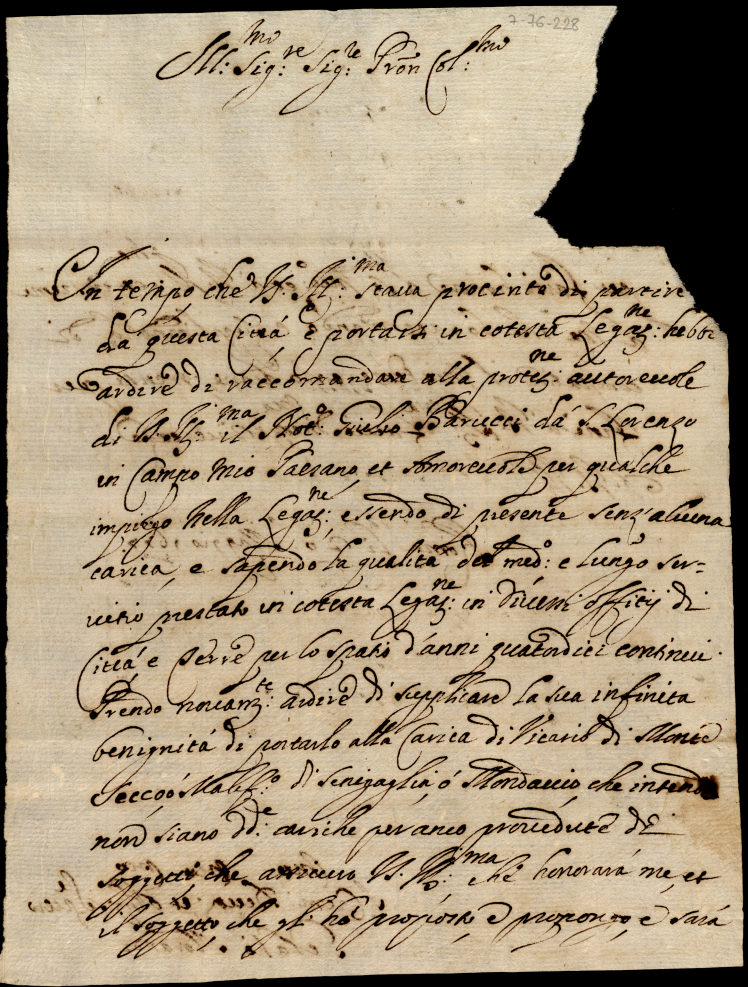 7-76-228
Ill:mo Sig:re Sig:re Pron Col:mo
In tempo che V.S. Ill:ma staua procinto di partire
da questa Città e portarsi in cotesta Legaz:ne hebbi
ardire di raccomandare alla protez:ne autoreuole
di V.S. Ill:ma il Not:o Giulio Barucci da S. Lorenzo
in Campo mio Paesano, et Amoreuole per qualche
impiego nella Legaz:ne, essendo di presente senz'alcuna
carica, e sapendo la qualità del med:o e lungo ser-
uitio prestato in cotesta Legaz:ne in diuersi offitij di
Città e Terre per lo spatio d'anni quatordici continui.
Prendo nouam:te ardire di supplicare la sua infinita
benignità di portarlo alla Carica di Vicario di Monte
Secco ò Malef:o di Senigaglia, ò Mondauio che intendo
non siano dd:e cariche per anco prouedute di
soggetti, che assicuro V.S. Ill:ma che honorarà me, et
il soggetto che gl'hò proposto e propongo, e sarà